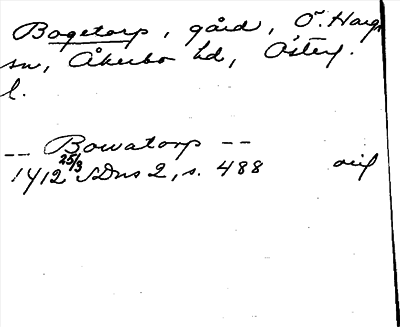 Bogetorp, gård, Ö. Harg
sn, Åkerbo hd, Österg.
l.
-- Bowatorp --
1412 25/3 SDns 2, s. 488 orig